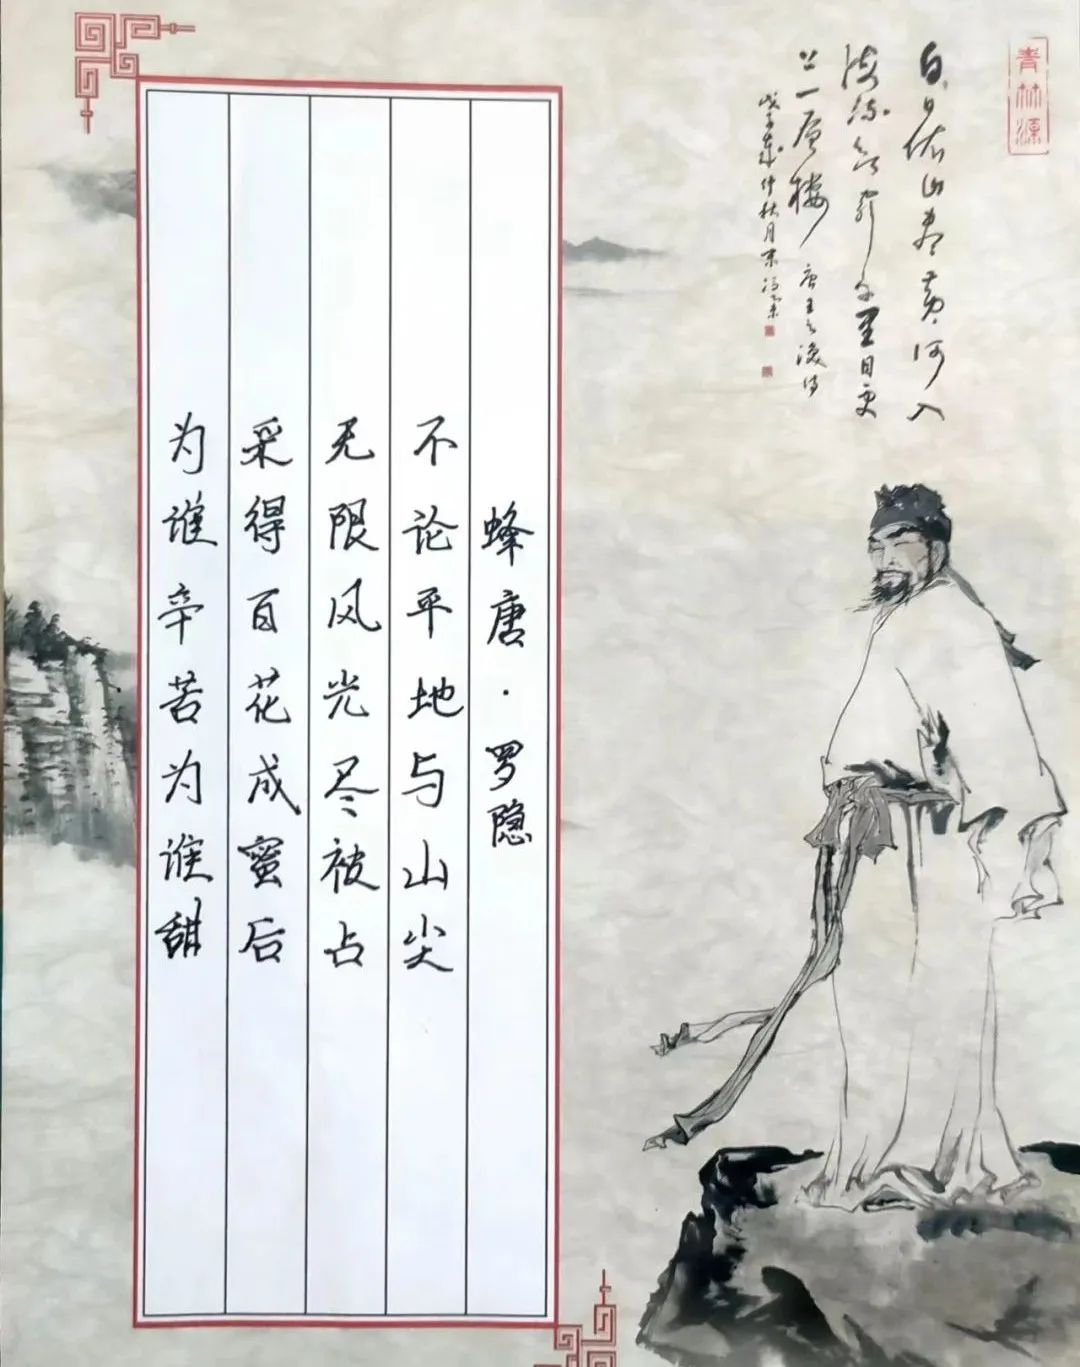 青林源
白日依山尽黄河入
海流欲穷千里目更
上一层楼 唐王之涣诗
蜂唐·罗隐
不论平地与山尖
无限风光尽被占
采得百花成蜜后
为谁辛苦为谁甜